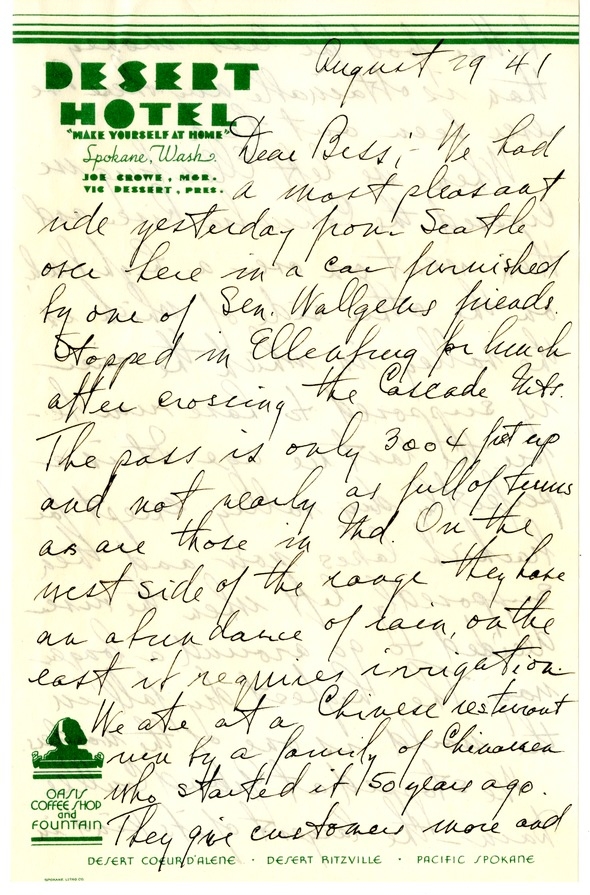 DESERT
HOTEL
"MAKE YOURSELF AT HOME"
Spokane, Wash.
JOE CROWE, MGR.
VIC DESSERT, PRES.
August 29 '41
Dear Bess; - We had
a most pleasant
ride yesterday from Seattle
over here in a car furnished
by one of Sen. Wallgens friends.
Stopped in Ellenburg for lunch
after crossing the Cascade Mts.
The pass is only 3004 feet up
and not nearly as full of turns
as are those in Md. On the
west side of the range they have
an abundance of rain, on the
east it requires irrigation.
We ate at a Chinese resturant
run by a family of Chinamen
who started it 50 years ago.
They give customers more and
OASIS
COFFEE SHOP
and
FOUNTAIN
DESERT COEUR D'ALENE · DESERT RITZVILLE · PACIFIC SPOKANE
SPOKANE LITHO CO.